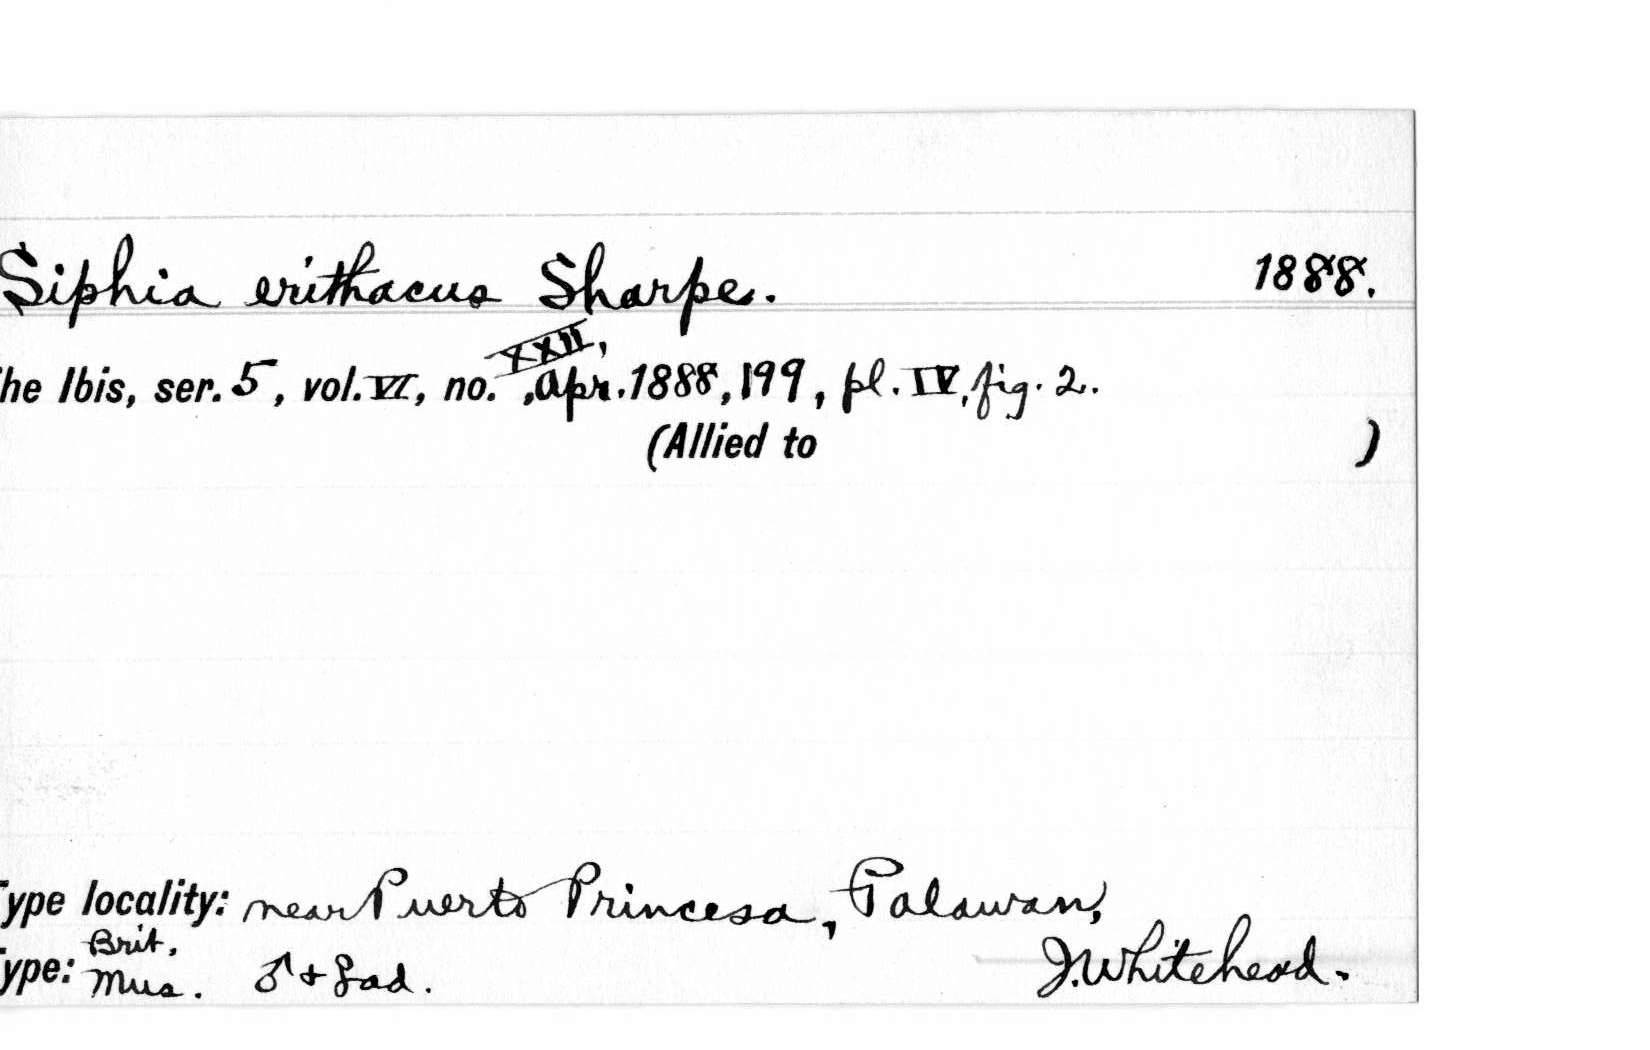 Siphia erithacus Sharpe. 1888.
he Ibis, ser. 5, vol. VI, no. XXII, Apr. 1888, 199, pl. IV, fig. 2.
(Allied to )
Type locality: near Puerto Princesa, Palawan,
Type: Brit. Mus. ♂ + ♀ ad. J. Whitehead.